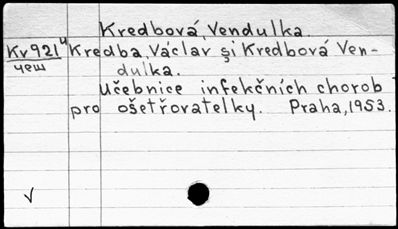 Kredbová, Vendulka.
Kv921ч Kredba, Václav și Kredbová Ven-
чеш dulka.
Učebnice infekčních chorob
pro ošetřovatelky. Praha, 1953.